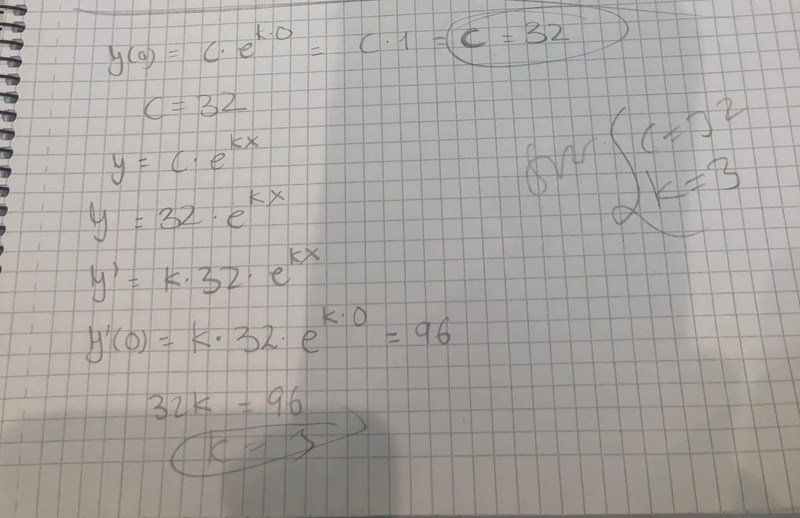 y(0) = C · e^{k·0} = C · 1 = C = 32
C = 32
y = C · e^{kx}
y = 32 · e^{kx}
y' = k · 32 · e^{kx}
y'(0) = k · 32 · e^{k·0} = 96
32k = 96
k = 3
C = 32
k = 3